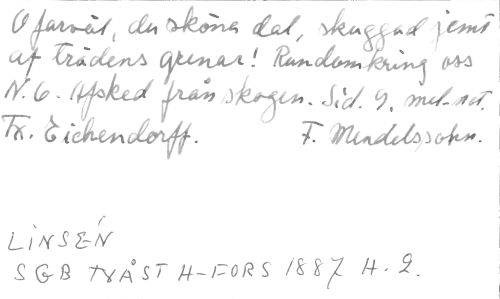 O farväl, du sköna dal, skuggad jemt
af trädens grenar! Rundomkring oss
N. 6. Afsked från skogen. Sid. 9. mel-not.
Tx. Eichendorff. F. Mendelssohn.
LINSÉN
SGB TVÅST H-FORS 1887 H. 2.